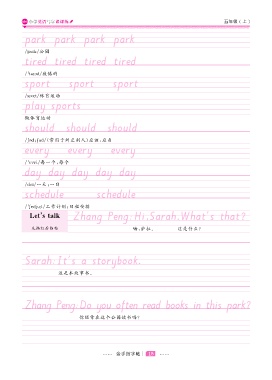 五年级（上）
park park park park
/pɑːk/公园
tired tired tired tired
/ˈtaɪəd/疲倦的
sport sport sport
/spɔːt/体育运动
play sports
做体育运动
should should should
every every every
/ˈevri/每一个；每个
day day day day day
/deɪ/一天；一日
schedule schedule
/ˈʃedjuːl/工作计划；日程安排
Let's talk
Zhang Peng:Hi,Sarah.What's that?
嗨，萨拉。 这是什么？
Sarah:It's a storybook.
这是本故事书。
Zhang Peng:Do you often read books in this park?
你经常在这个公园读书吗？